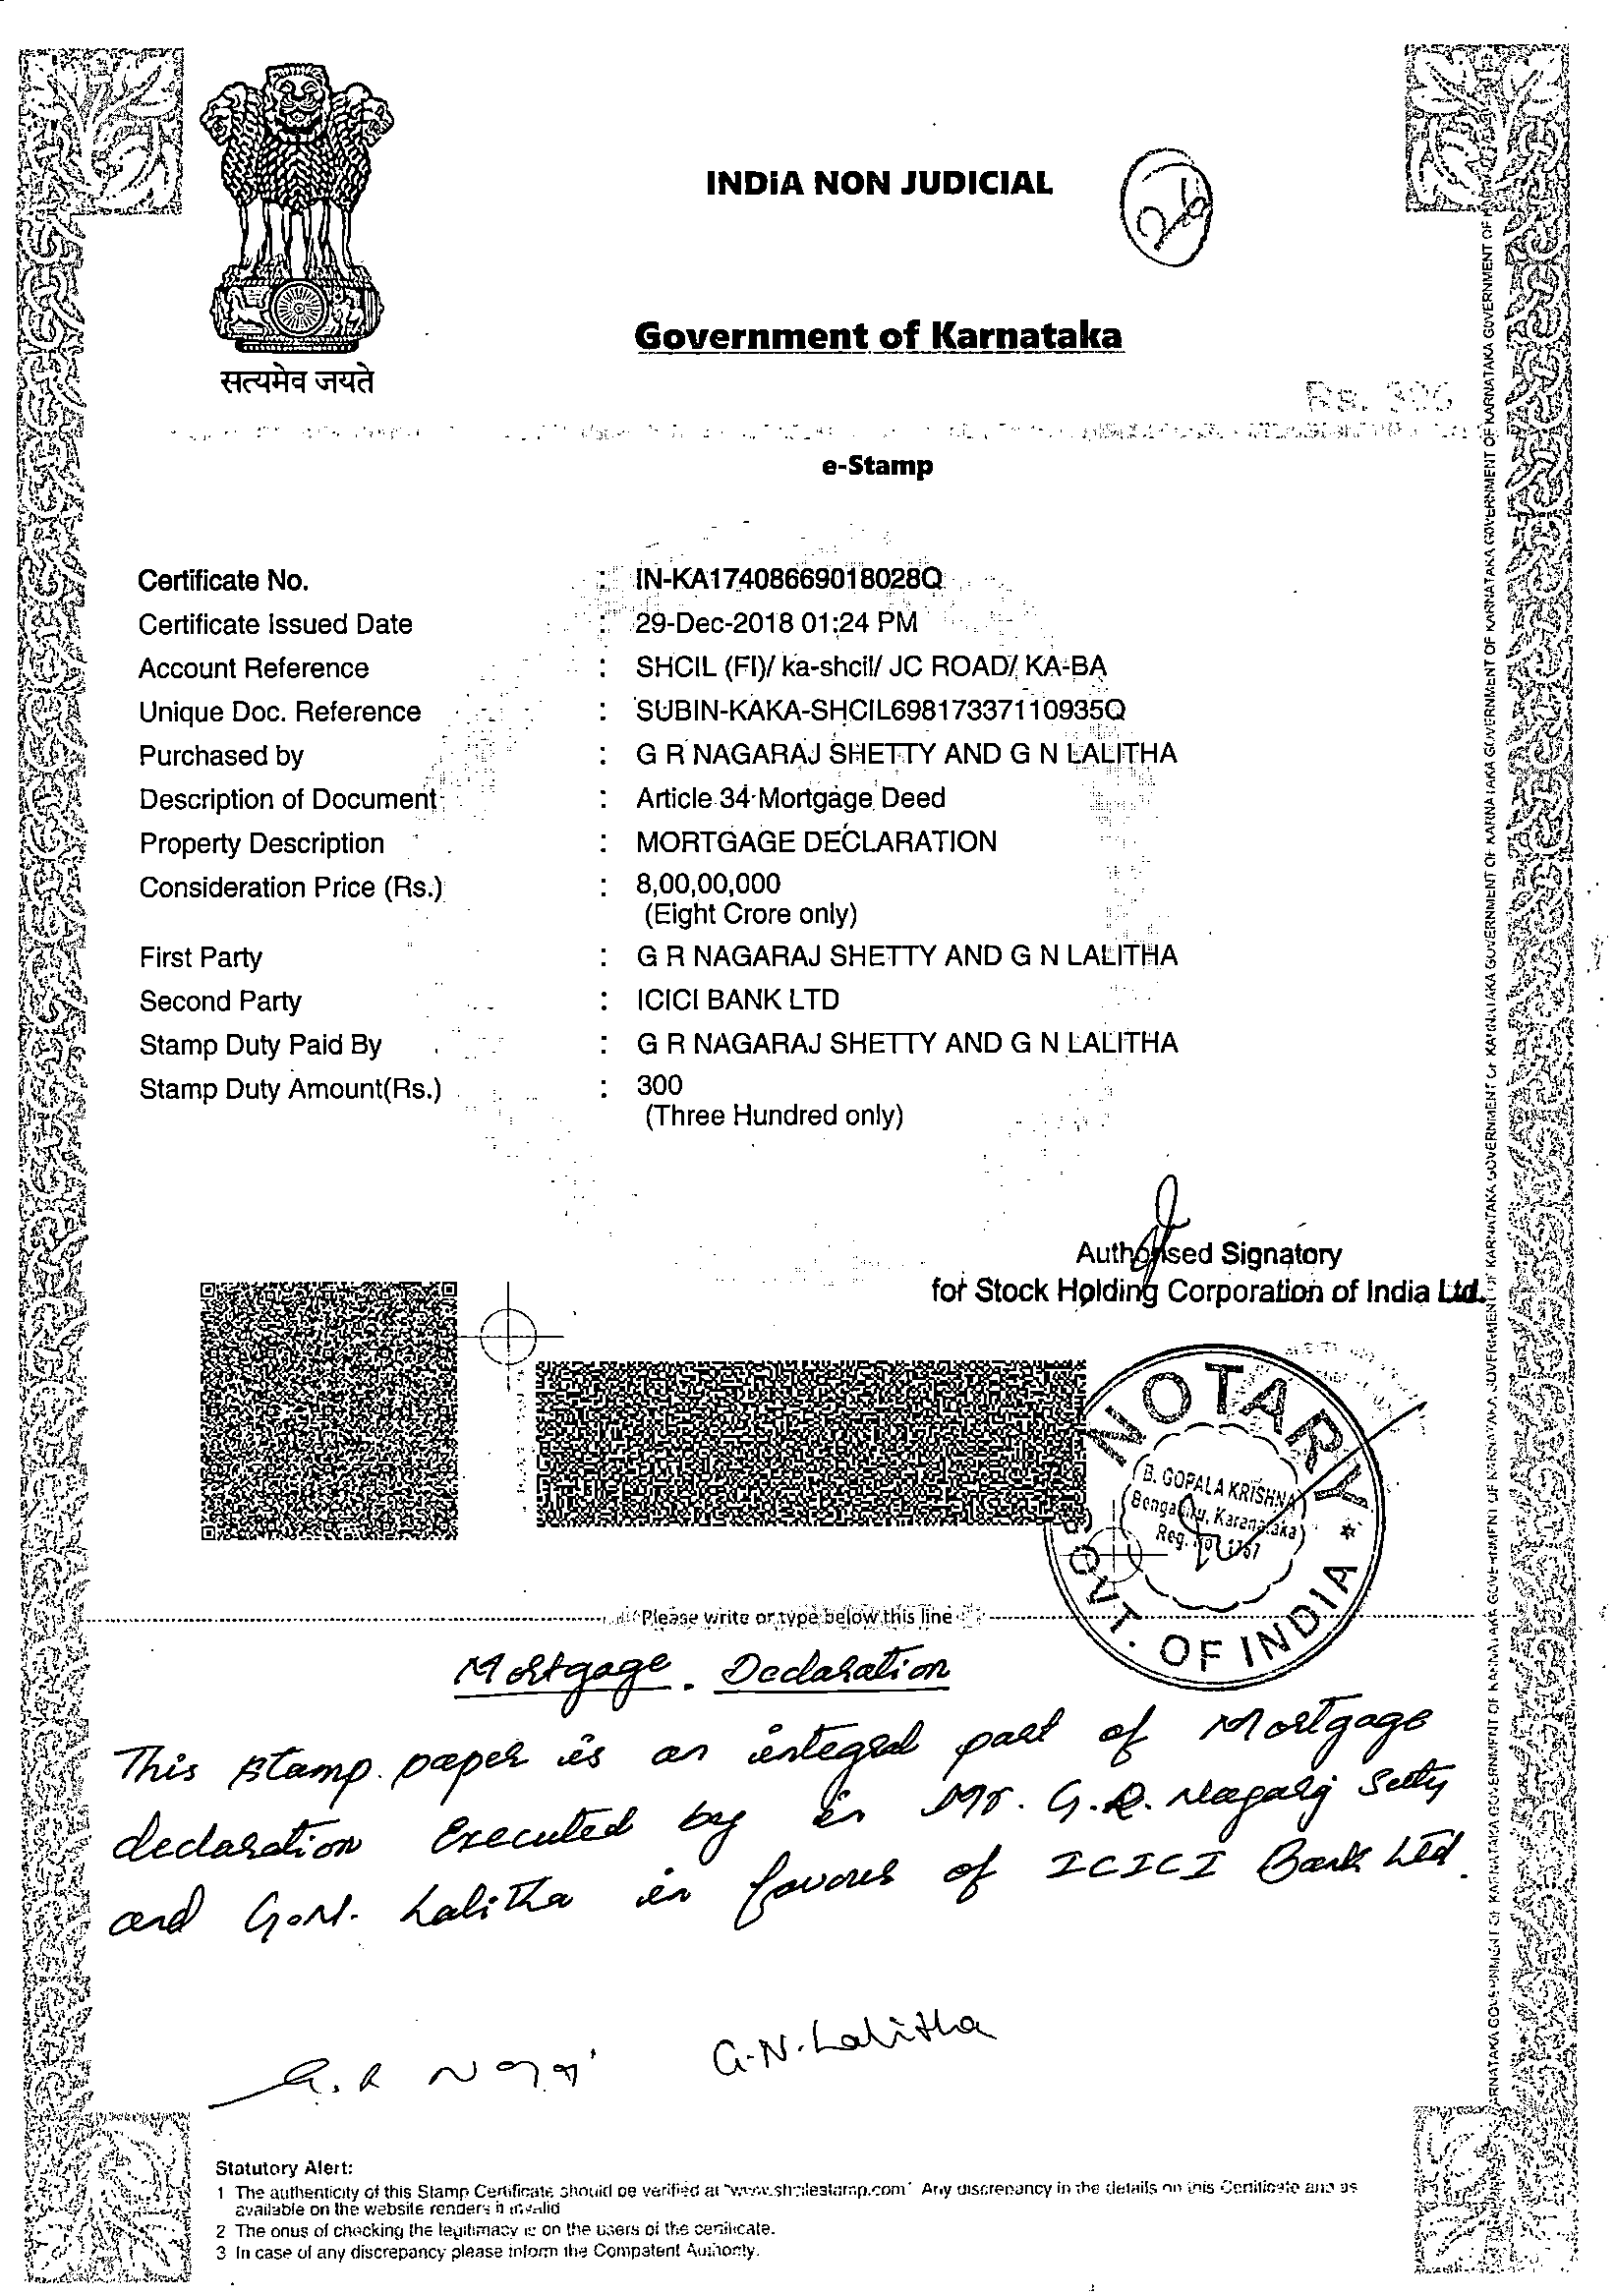 INDIA NON JUDICIAL
26
Government of Karnataka
सत्यमेव जयते
Rs. 300
e-Stamp
Certificate No. : IN-KA17408669018028Q
Certificate Issued Date : 29-Dec-2018 01:24 PM
Account Reference : SHCIL (FI)/ ka-shcil/ JC ROAD/ KA-BA
Unique Doc. Reference : SUBIN-KAKA-SHCIL69817337110935Q
Purchased by : G R NAGARAJ SHETTY AND G N LALITHA
Description of Document : Article 34 Mortgage Deed
Property Description : MORTGAGE DECLARATION
Consideration Price (Rs.) : 8,00,00,000
(Eight Crore only)
First Party : G R NAGARAJ SHETTY AND G N LALITHA
Second Party : ICICI BANK LTD
Stamp Duty Paid By : G R NAGARAJ SHETTY AND G N LALITHA
Stamp Duty Amount(Rs.) : 300
(Three Hundred only)
Authorised Signatory
for Stock Holding Corporation of India Ltd.
NOTARY
B. GOPALA KRISHNA
Bengaluru, Karanataka
Reg. No.
GOVT. OF INDIA
Please write or type below this line
Mortgage Declaration
This stamp paper is an integral part of Mortgage
declaration Executed by in Mr. G.R. Nagaraj Setty
and G.N. Lalitha in favour of ICICI Bank Ltd.
G.R Nagaraj G.N. Lalitha
Statutory Alert:
1 The authenticity of this Stamp Certificate should be verified at "www.shcilestamp.com" Any discrepancy in the details on this Certificate and as
available on the website renders it invalid
2 The onus of checking the legitimacy is on the users of the certificate.
3 In case of any discrepancy please inform the Competent Authority.